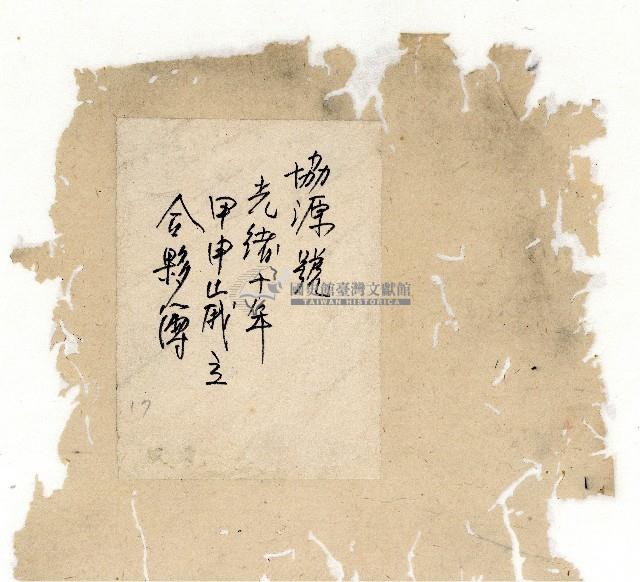 協源號
光緒十年
甲申歲立
合夥簿
國史館臺灣文獻館
TAIWAN HISTORICA
17